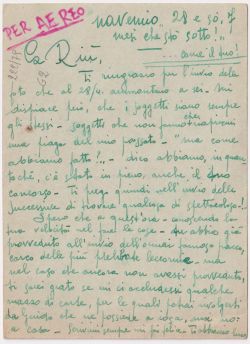 PER AEREO
"28 e só, 7
mesi che stò sotto!"...
...come il tuo!
Ti ringrazio per l'invio delle
foto che al 28/4 ammontano a sei - mi
dispiace però, che i soggetti siano sempre
gli stessi - soggetti che non fanno che riaprirmi
una piaga del mio passato - "ma come
abbiamo fatto!..." - dico abbiamo, in quan
tochè, c'è stato in pieno, anche il tuo
concorso - Ti prego quindi nell'invio delle
successive di trovare qualcosa di
Spero che a quest'ora - conoscendo la
tua velocità nel fare le cose - tu abbia già
provveduto all'invio dell'ormai famoso pacco,
carico delle più leccornie - ma
nel caso che ancora non avessi provveduto,
ti sarei grato se mi ci accludessi qualche
mazzo di carte, per le quali potrai rivolgerti
da Guido che ne possiede a iosa,
a casa - Scrivimi sempre